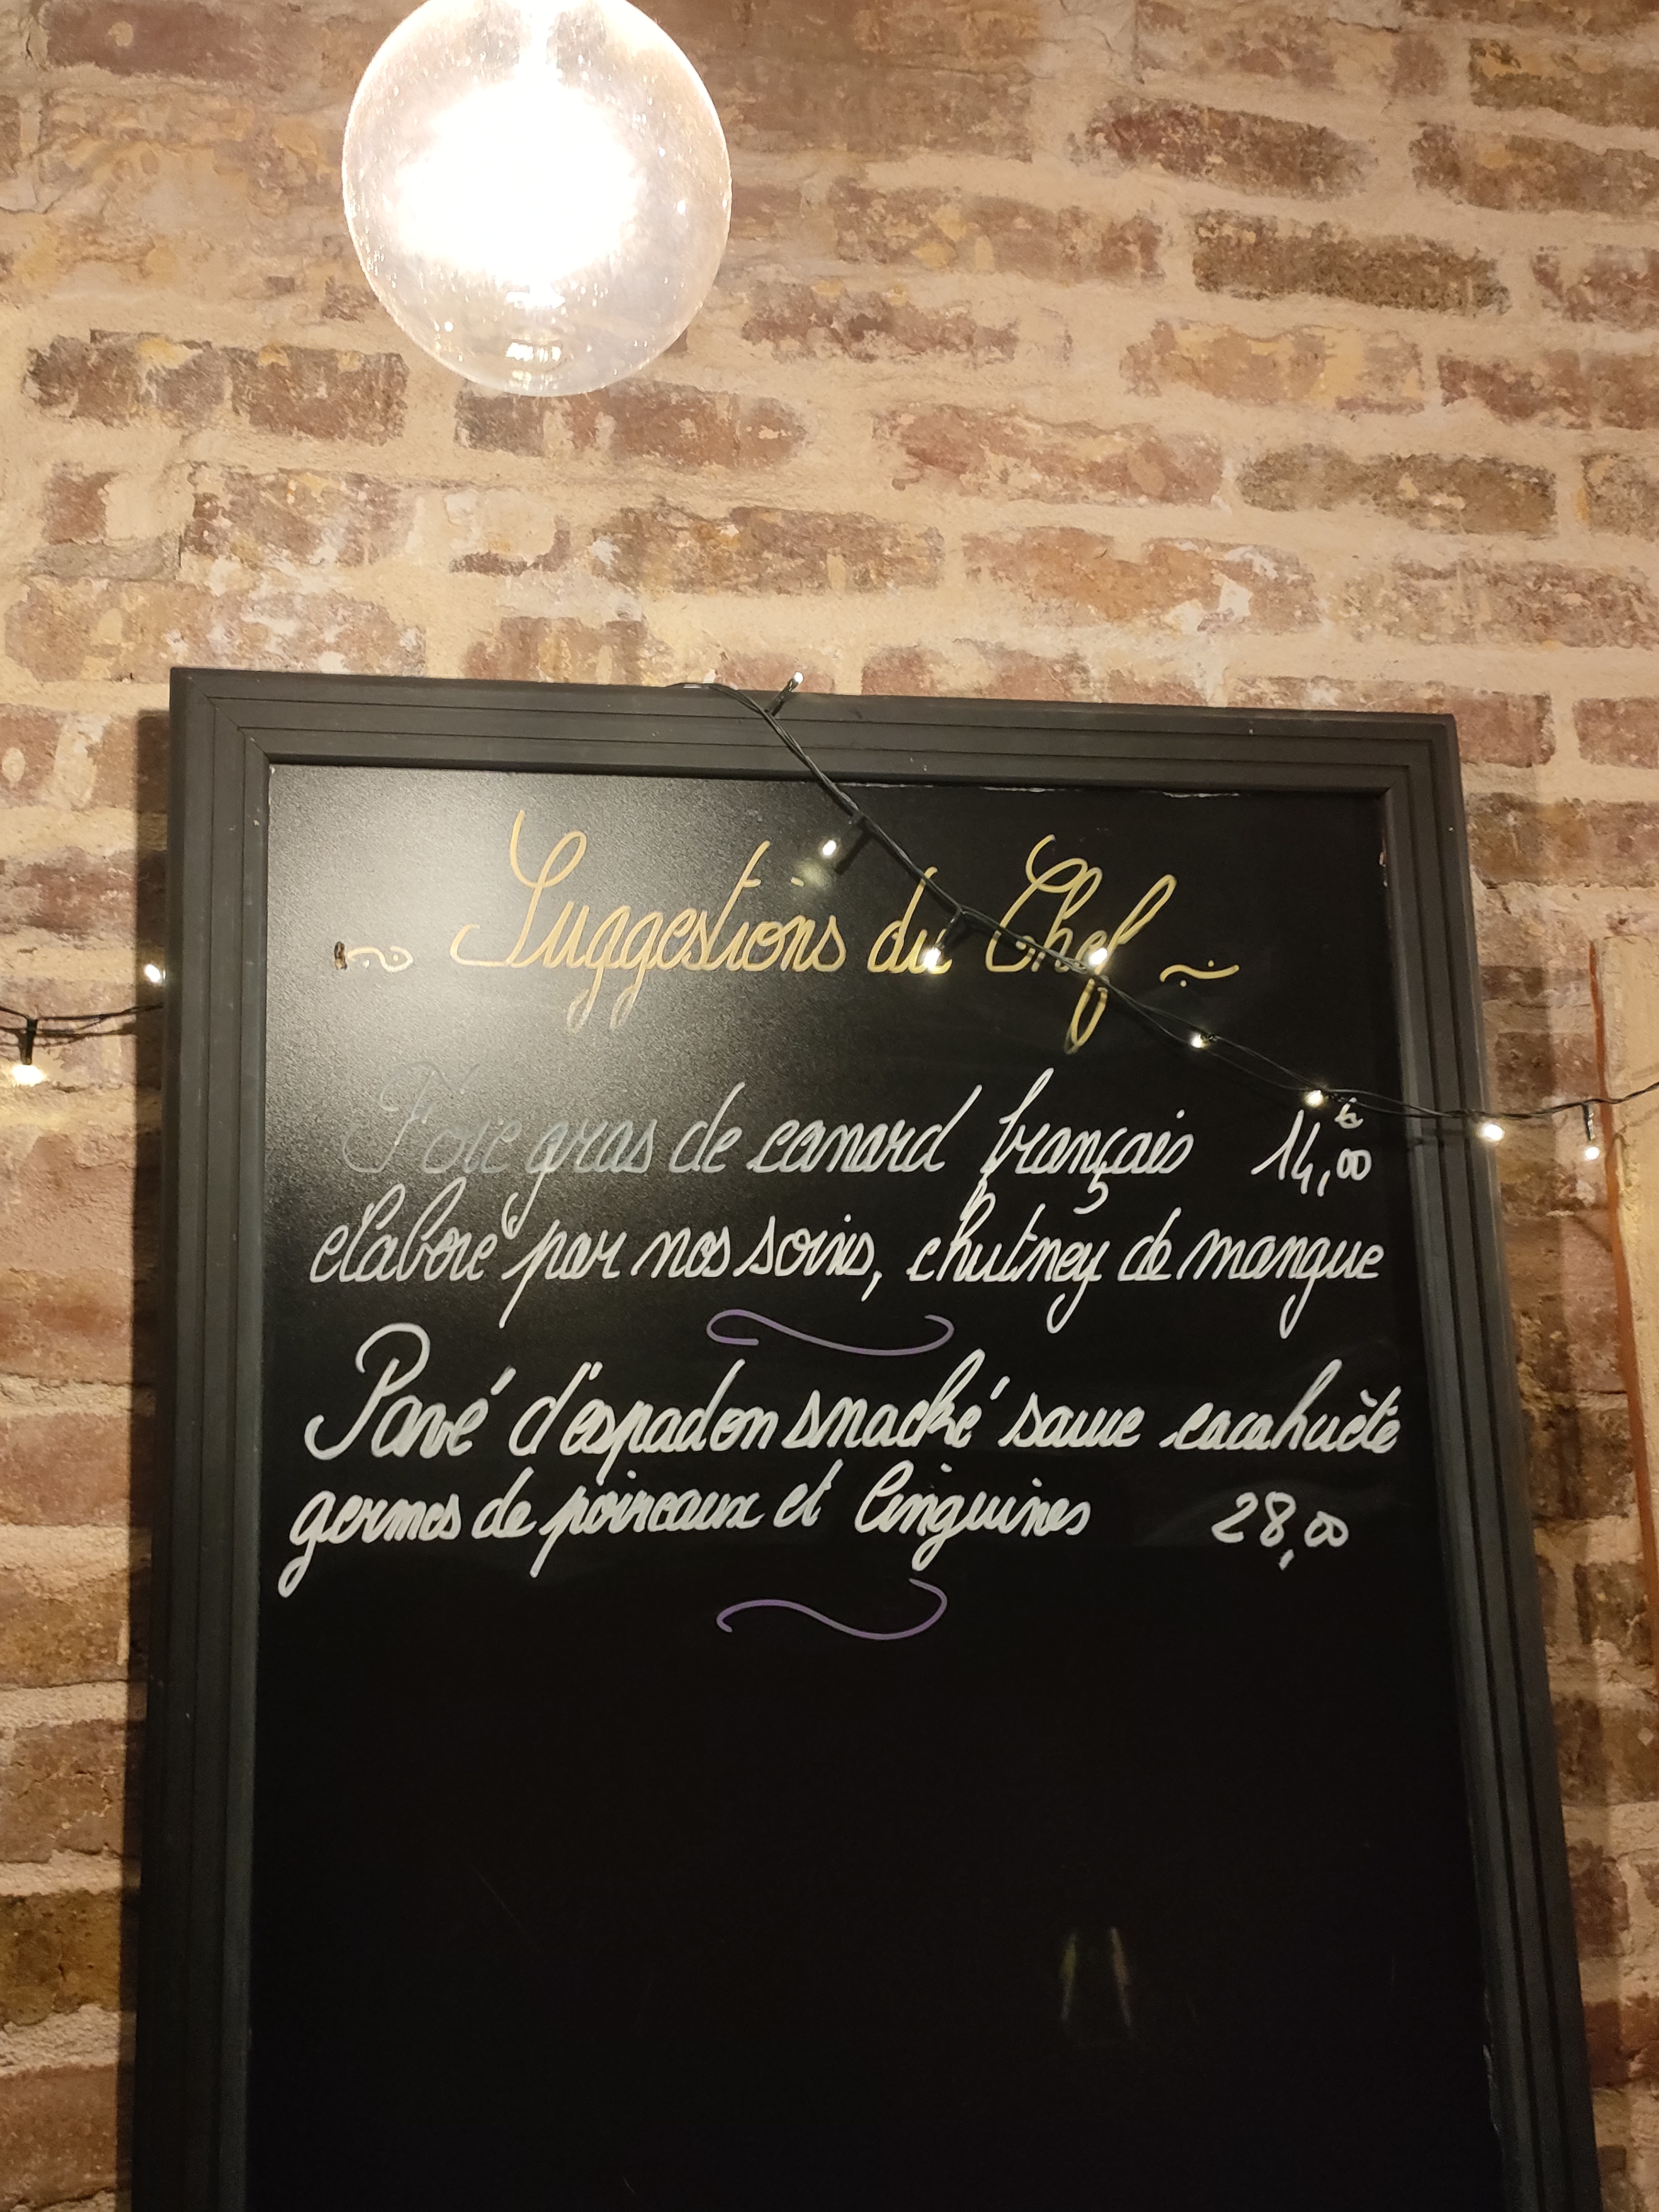 Suggestions du Chef
Foie gras de canard français 14,00 €
élaboré par nos soins, chutney de mangue
Pavé d'espadon snacké sauce cacahuète
germes de poireaux et linguines 28,00